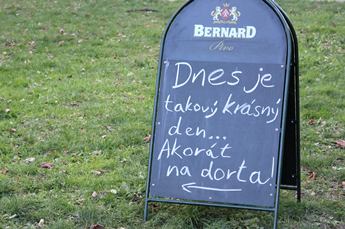 BERNARD
Pivo
Dnes je
takový krásný
den...
Akorát
na dorta!
BERNARD